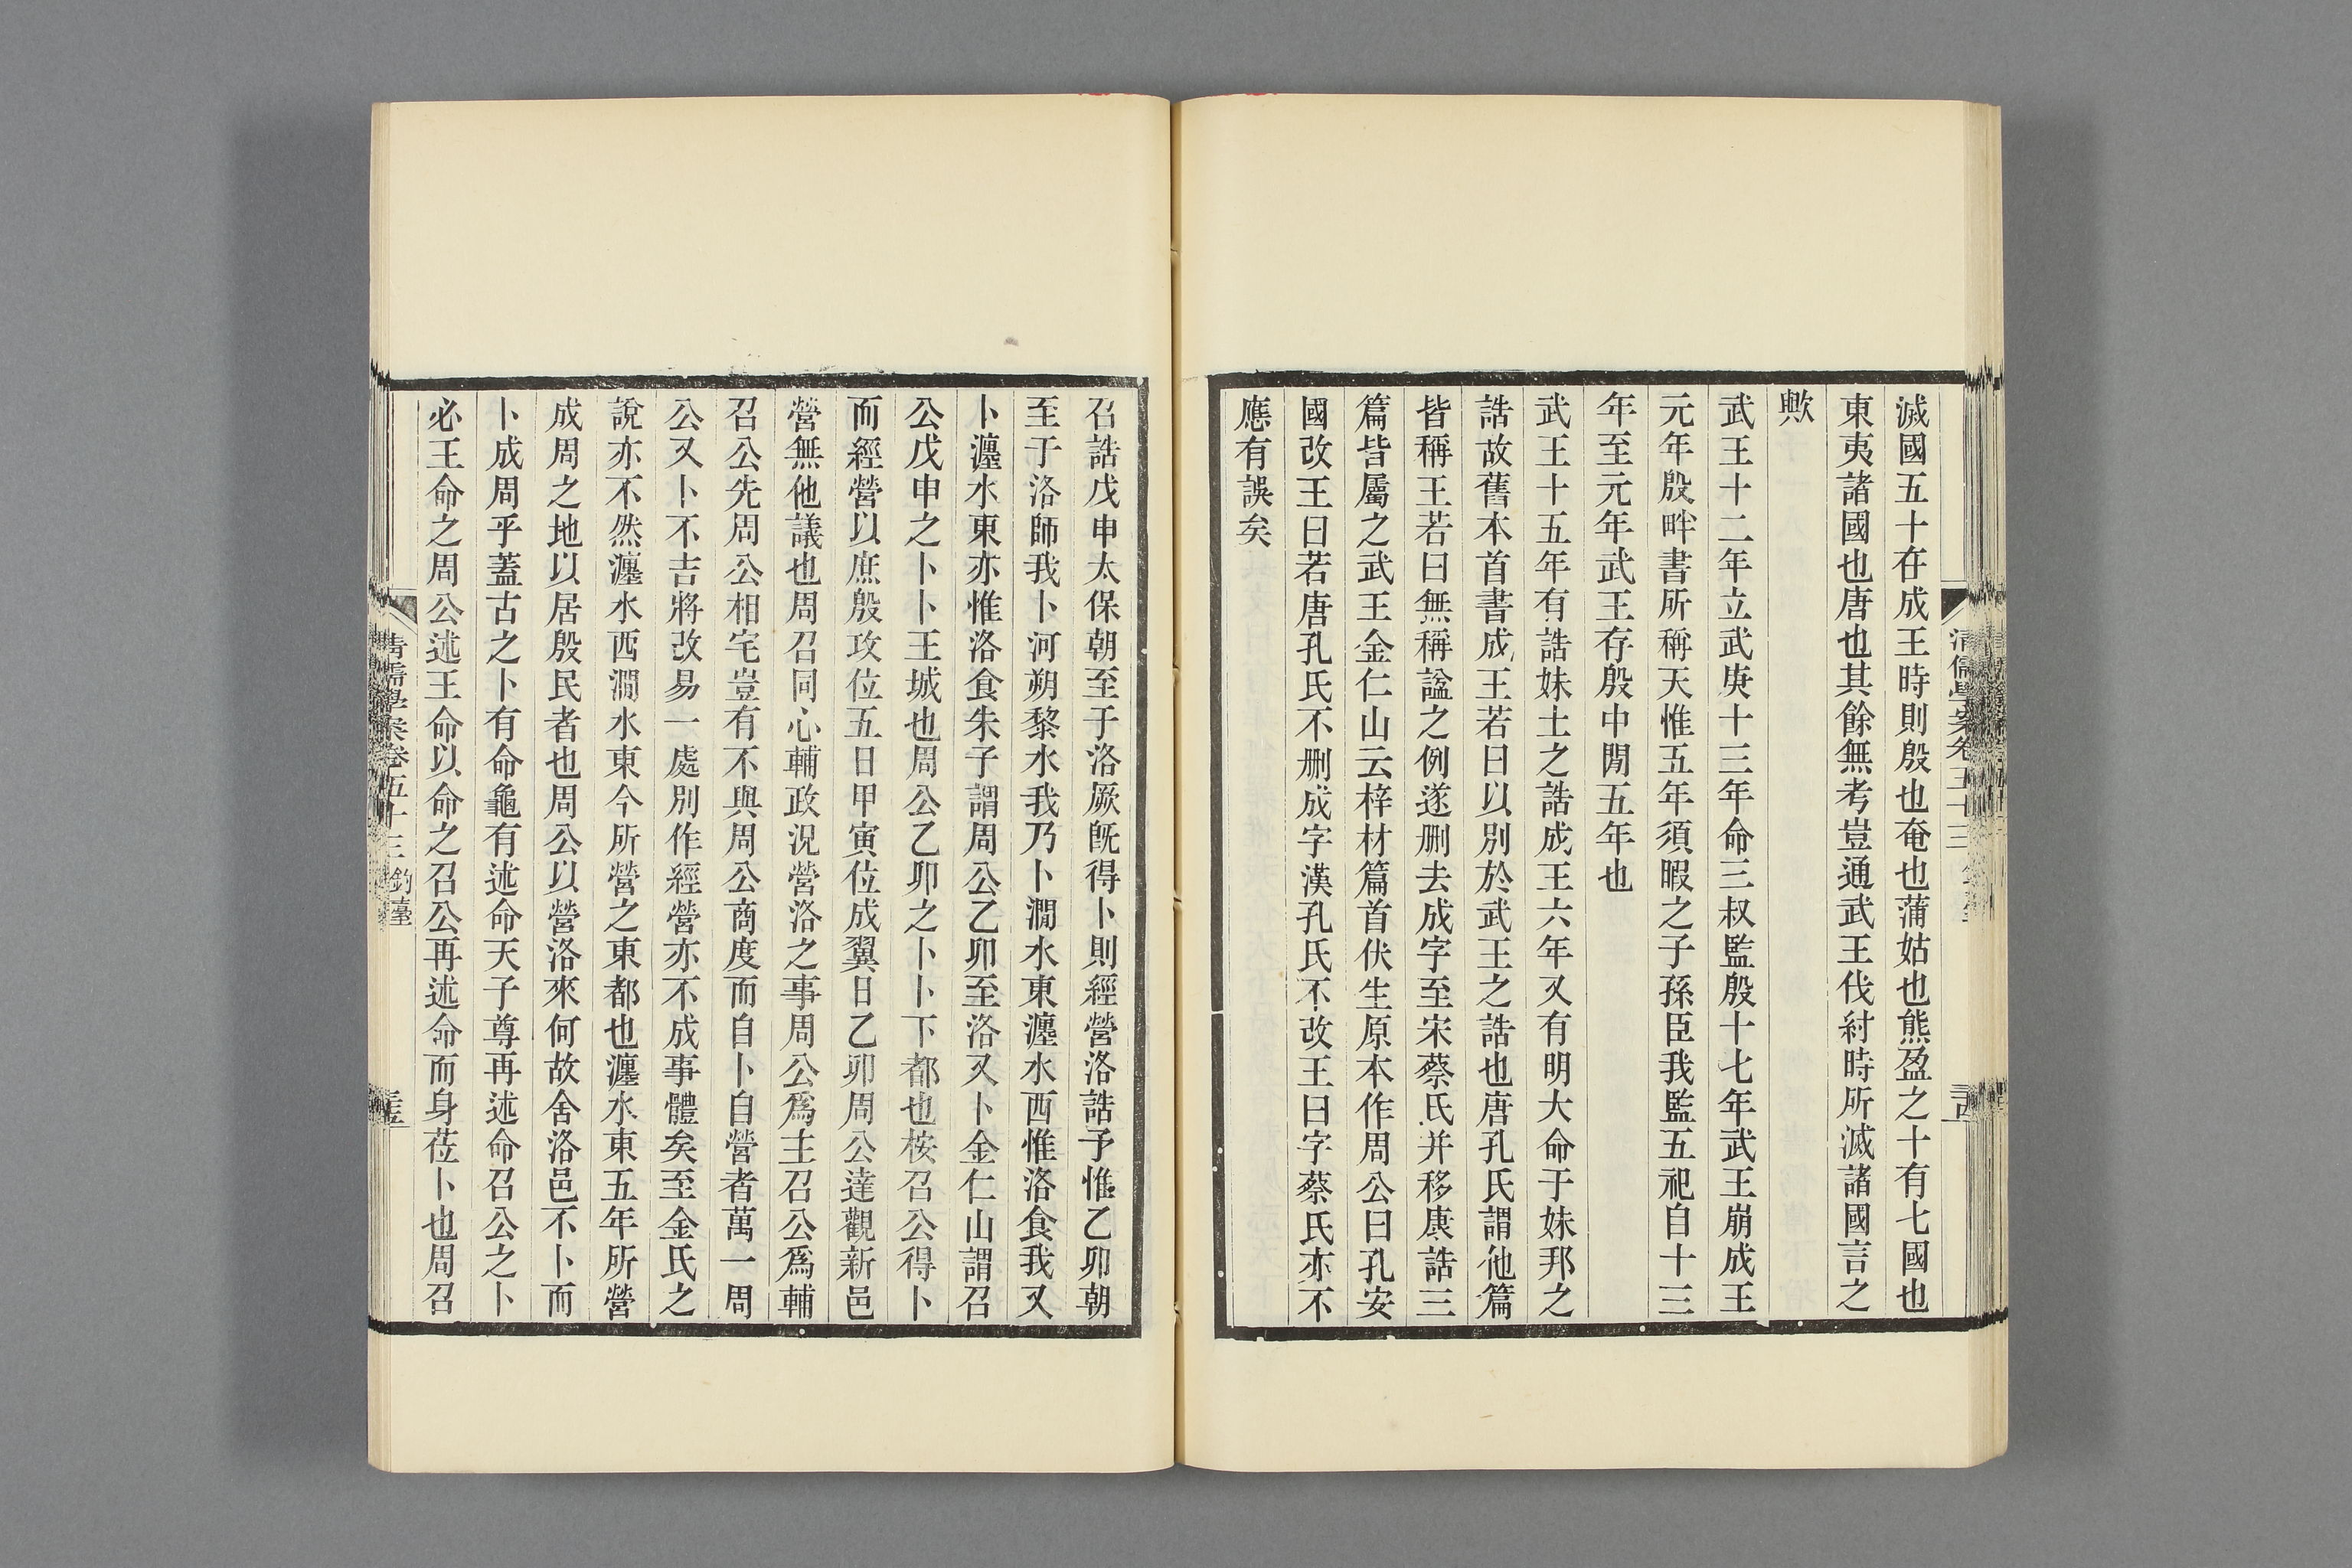 滅國五十在成王時則殷也奄也蒲姑也熊盈之十有七國也
東夷諸國也唐也其餘無考豈通武王伐紂時所滅諸國言之
歟
武王十二年立武庚十三年命三叔監殷十七年武王崩成王
元年殷畔書所稱天惟五年須暇之子孫臣我監五祀自十三
年至元年武王存殷中閒五年也
武王十五年有誥妹土之誥成王六年又有明大命于妹邦之
誥故舊本首書成王若曰以別於武王之誥也唐孔氏謂他篇
皆稱王若曰無稱諡之例遂刪去成字至宋蔡氏并移康誥三
篇皆屬之武王金仁山云梓材篇首伏生原本作周公曰孔安
國改王曰若唐孔氏不刪成字漢孔氏不改王曰字蔡氏亦不
應有誤矣
召誥戊申太保朝至于洛厥既得卜則經營洛誥予惟乙卯朝
至于洛師我卜河朔黎水我乃卜澗水東瀍水西惟洛食我又
卜瀍水東亦惟洛食朱子謂周公乙卯至洛又卜金仁山謂召
公戊申之卜卜王城也周公乙卯之卜卜下都也桉召公得卜
而經營以庶殷攻位五日甲寅位成翼日乙卯周公達觀新邑
營無他議也周召同心輔政況營洛之事周公爲主召公爲輔
召公先周公相宅豈有不與周公商度而自卜自營者萬一周
公又卜不吉將改易一處別作經營亦不成事體矣至金氏之
說亦不然瀍水西澗水東今所營之東都也瀍水東五年所營
成周之地以居殷民者也周公以營洛來何故舍洛邑不卜而
卜成周乎蓋古之卜有命龜有述命天子尊再述命召公之卜
必王命之周公述王命以命之召公再述命而身莅卜也周召
清儒學案卷五十三 鈞臺